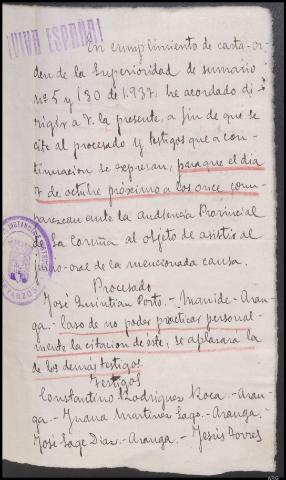 ¡VIVA ESPAÑA!
En cumplimiento de carta-or-
den de la Superioridad de sumario
nº 5 y 130 de 1.937, he acordado di-
rigir a V. la presente, a fin de que se
cite al procesado y testigos que a con-
tinuación se expresan, para que el día
7 de octubre próximo a las once com-
parezcan ante la Audiencia Provincial
de La Coruña al objeto de asistir al
juicio-oral de la mencionada causa.
Procesado
José Quintian Porto.- - Aran-
ga.- Caso de no poder practicar personal-
mente la citacion de éste, se aplazará la
de los demás testigos.
Testigos
Constantino Rodriguez Roca.- Aran-
ga.- Juana Martinez Sago.- Aranga.-
José Sage Diaz.- Aranga.- Jesús Torres